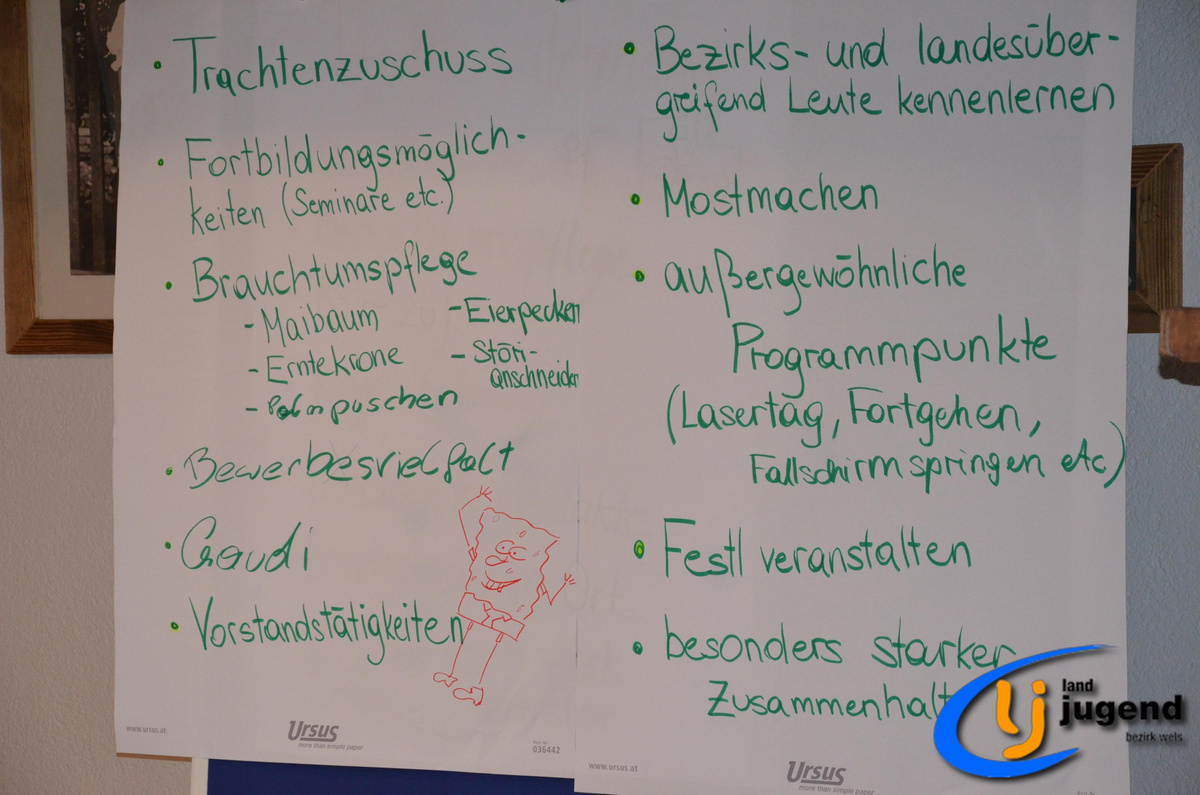 • Trachtenzuschuss
• Fortbildungsmöglich-
keiten (Seminare etc.)
• Brauchtumspflege
- Maibaum
- Erntekrone
- Palmpuschen
- Eierpecken
- Störi-
anschneiden
• Bewerbesvielfalt
• Gaudi
• Vorstandstätigkeiten
www.ursus.at
Ursus
more than simple paper
036442
• Bezirks- und landesüber-
greifend Leute kennenlernen
• Mostmachen
• außergewöhnliche
Programmpunkte
(Lasertag, Fortgehen,
Fallschirmspringen etc)
• Festl veranstalten
• besonders starker
Zusammenhalt
www.ursus.at
Ursus
more than simple paper
lj
land
jugend
bezirk wels